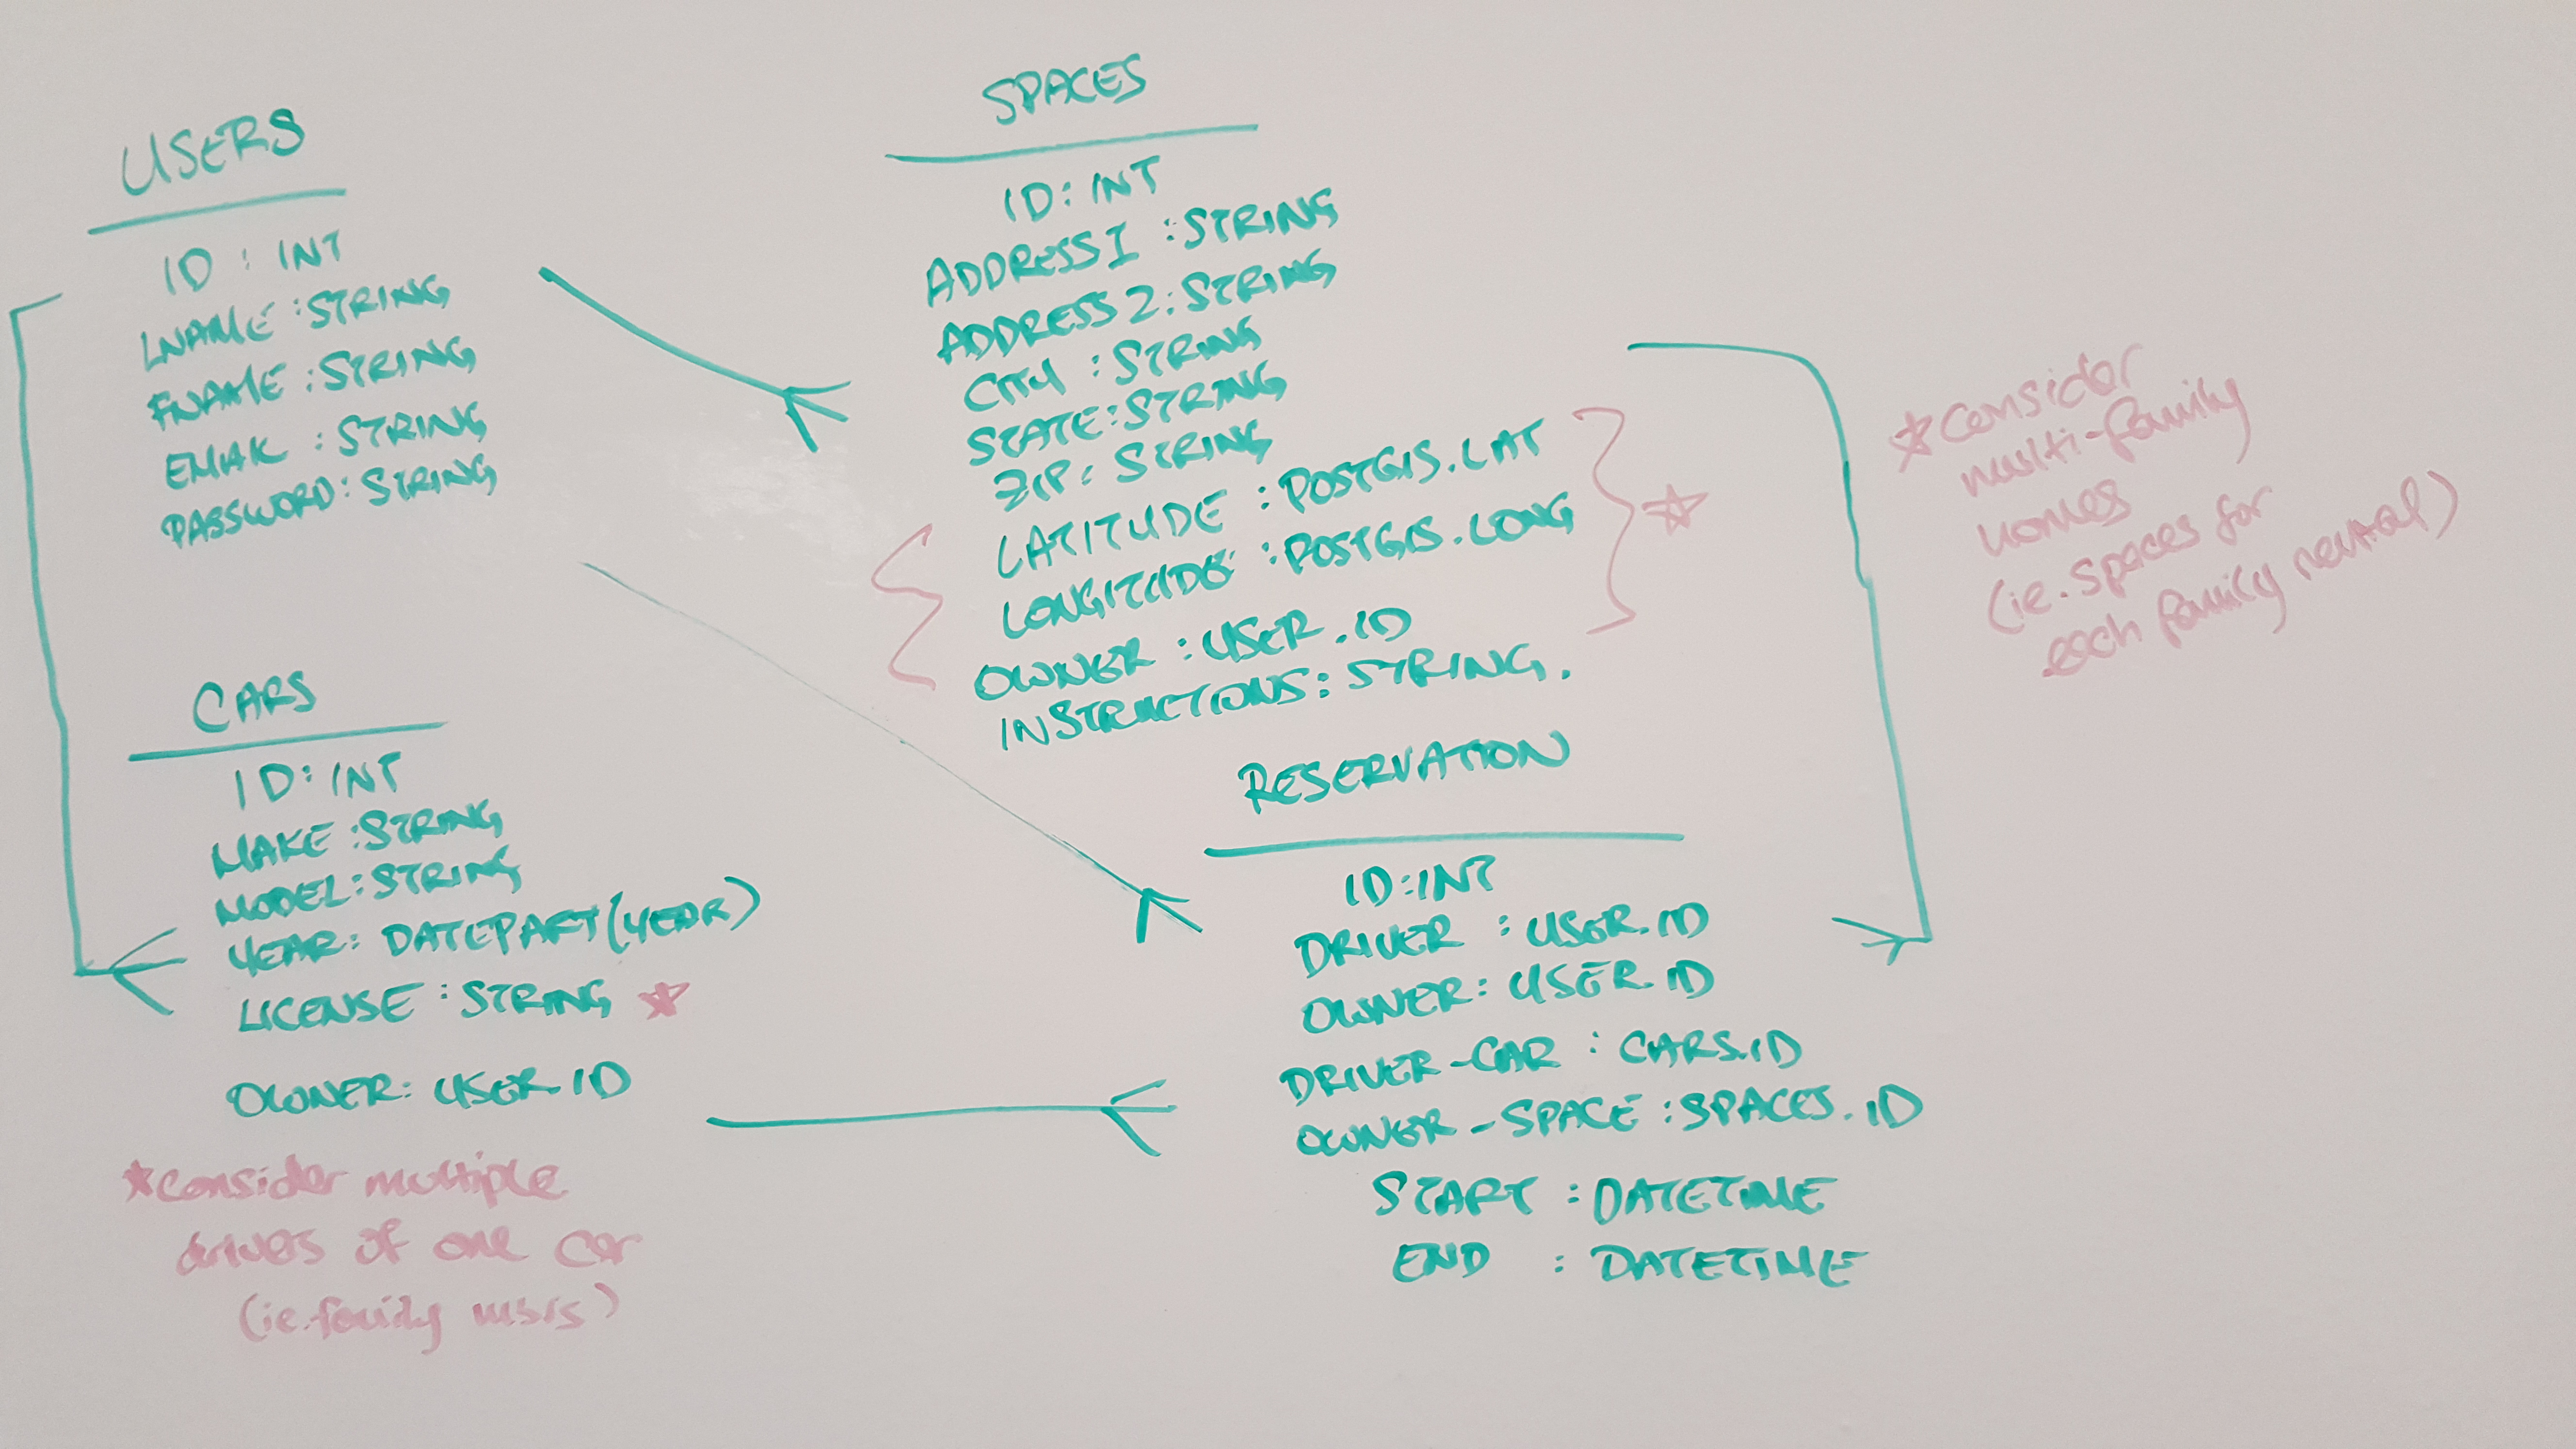 USERS
ID : INT
LNAME : STRING
FNAME : STRING
EMAIL : STRING
PASSWORD : STRING
SPACES
ID : INT
ADDRESS1 : STRING
ADDRESS2 : STRING
CITY : STRING
STATE : STRING
ZIP : STRING
LATITUDE : POSTGIS.LAT
LONGITUDE : POSTGIS.LONG
OWNER : USER.ID
INSTRUCTIONS : STRING.
*Consider
multi-family
homes
(ie. spaces for
each family neutral)
CARS
ID : INT
MAKE : STRING
MODEL : STRING
YEAR : DATEPART(YEAR)
LICENSE : STRING *
OWNER : USER.ID
*consider multiple
drivers of one car
(ie. family
RESERVATION
ID : INT
DRIVER : USER.ID
OWNER : USER.ID
DRIVER-CAR : CARS.ID
OWNER-SPACE : SPACES.ID
START : DATETIME
END : DATETIME